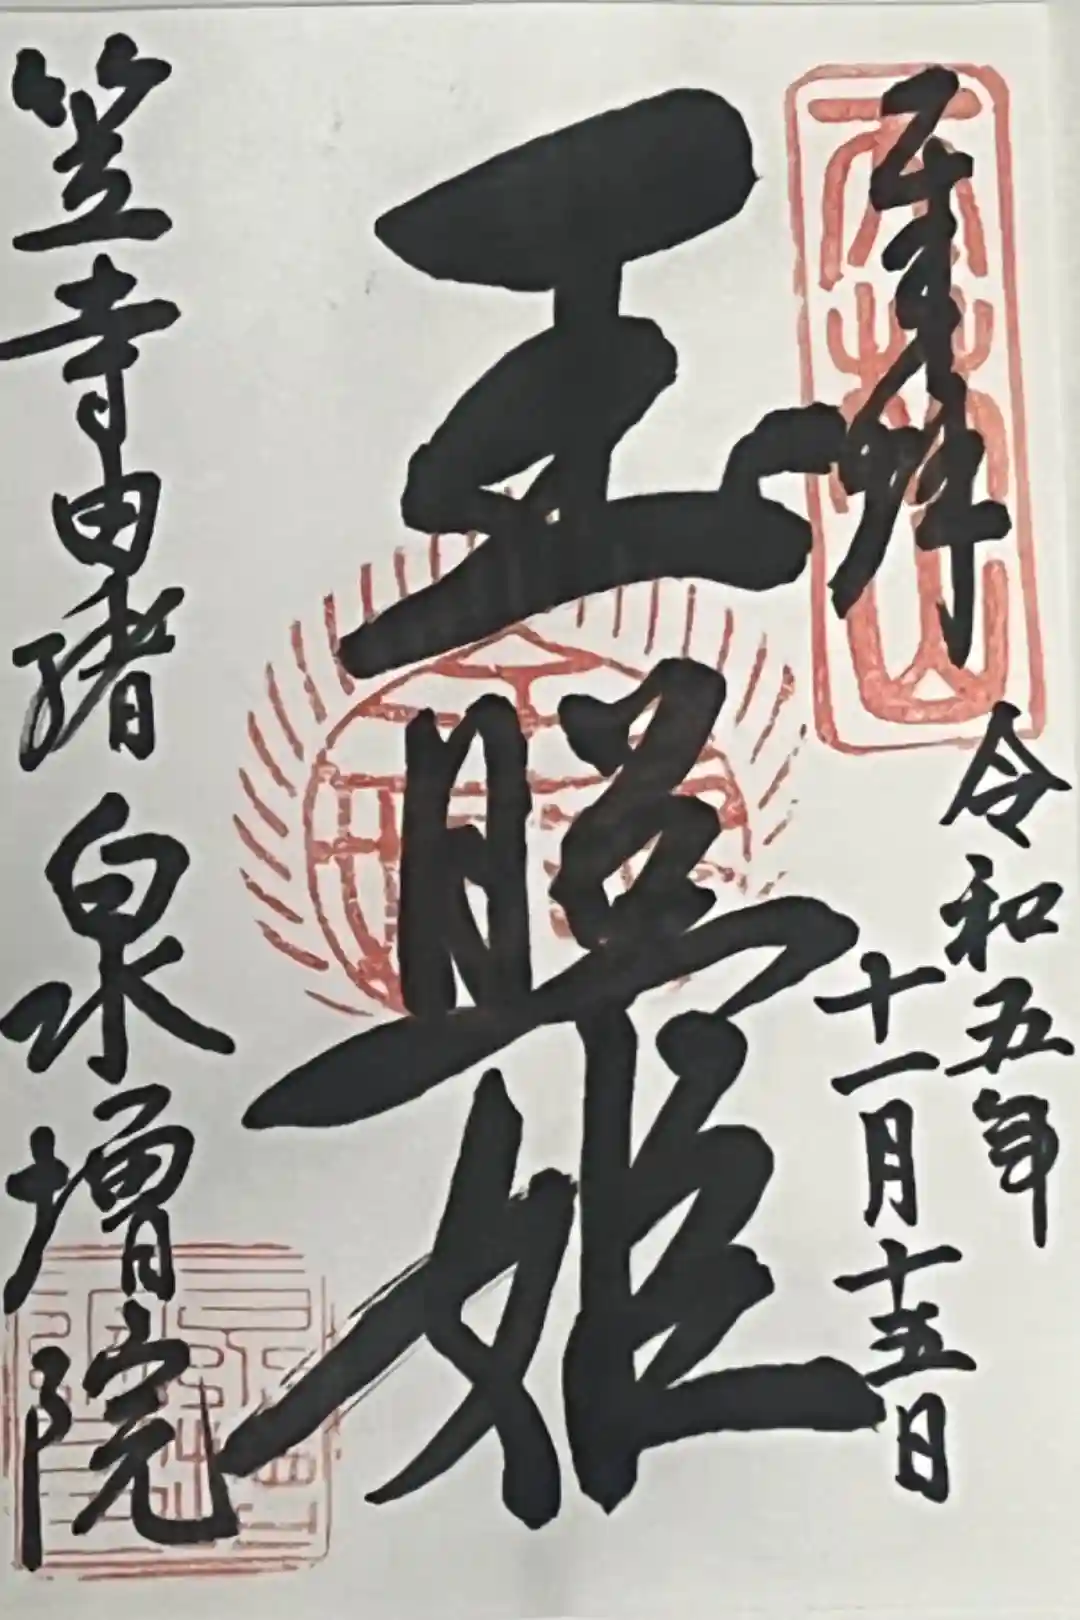 奉拝
令和五年
十一月十五日
玉照姫
笠寺由緒 泉増院